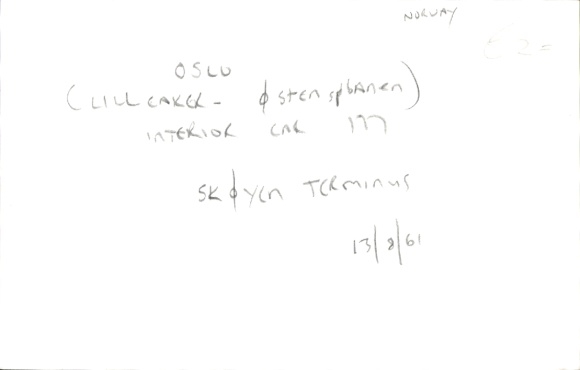 NORWAY
£2=
OSLO
(LILLEAKER- ØSTENSJØBANEN)
INTERIOR CAR 177
SKØYEN TERMINUS
13/8/61